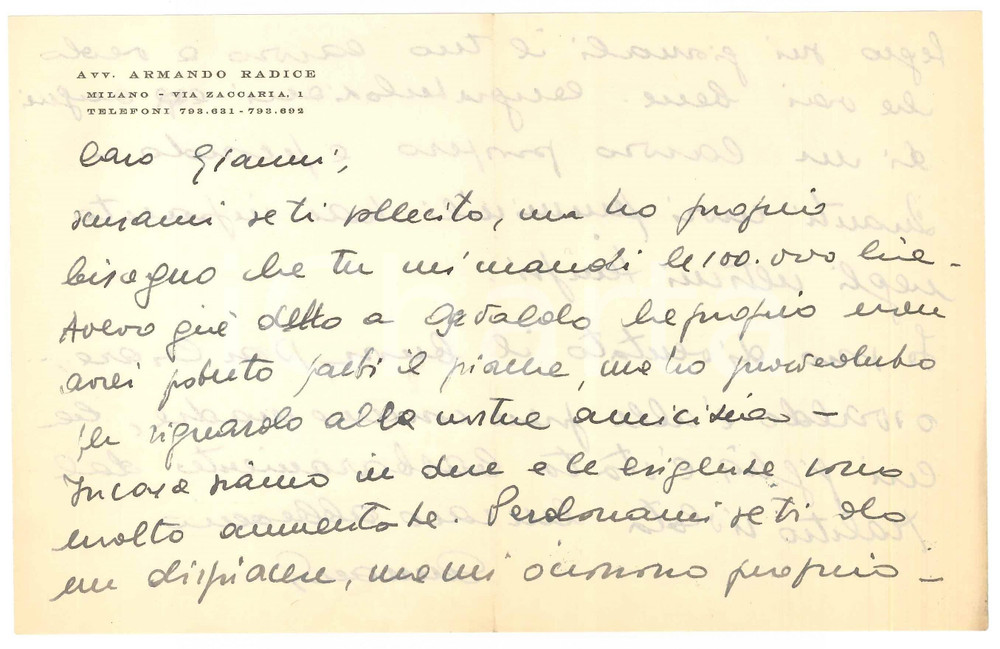 Avv. ARMANDO RADICE
MILANO - VIA ZACCARIA, 1
TELEFONI 793.631 - 793.692
Caro Gianni,
scusami se ti sollecito, ma ho proprio
bisogno che tu mi mandi le 100.000 lire -
Avevo già detto a Osvaldo che proprio non
avrei potuto farti il piacere, ma ho provveduto
per riguardo alla nostra amicizia -
In casa siamo in due e le esigenze sono
molto aumentate. Perdonami se ti do
un dispiacere, ma mi occorrono proprio -